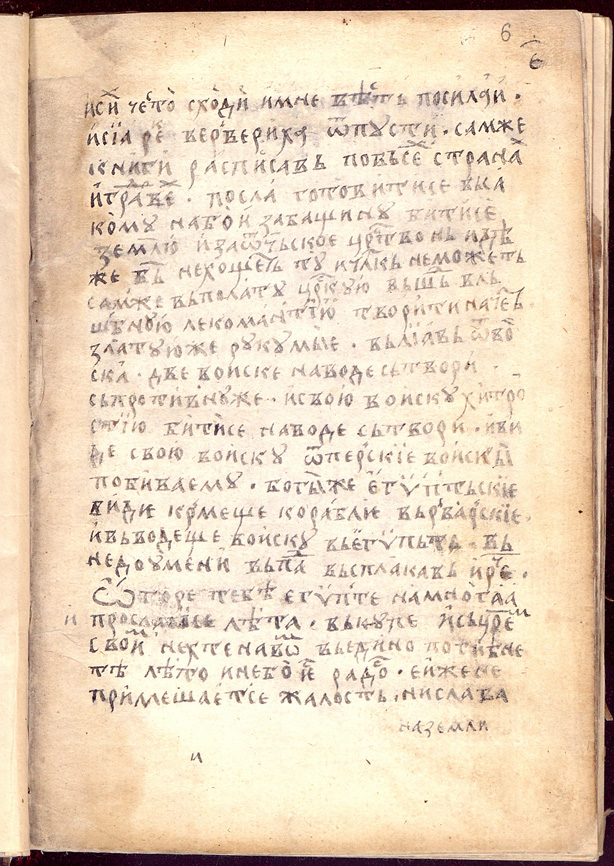 6
исй чето̀ сходи и́мне вѣⷭть посилаи ·
и́сїа реⷱ верверихꙗ ѿпусти · самже
книги расписавь повьсеⷯ странаⷯ
посла готовитисе
кому набои забащину битисе
землю и́за ѡчьское црⷭтво нь идѣ
же бь нехощеть ту и члкь неможеть
самже вьполату црⷭкую вьшь вль
шьбною лекомантїю творити наче
златуюже рукумые · вьлїавь ѿво
ска · две воиске наводе сьтвори ·
сьпротивнуже · исвою воиску хитро
стїю битисе наводе сьтвори · иви
де свою воиску ѿперскїе воискы
побиваему · богыже егѵптьскїе
види крмеще корабли варварскїе ·
ивьводеще воиску вьегѵпьть · вь
недоумени вьпаⷣ вьсплакавь и рче ·
Ѡгоре тебѣ егѵпте намногаа
прославлее лѣта · вькупе исьцреⷨ
своиⷨ нехтенавоⷨ вьедино погибне
тѣ лѣто инебо радоⷭ · еиже не
примешаетсе жалость · нислава
наземли